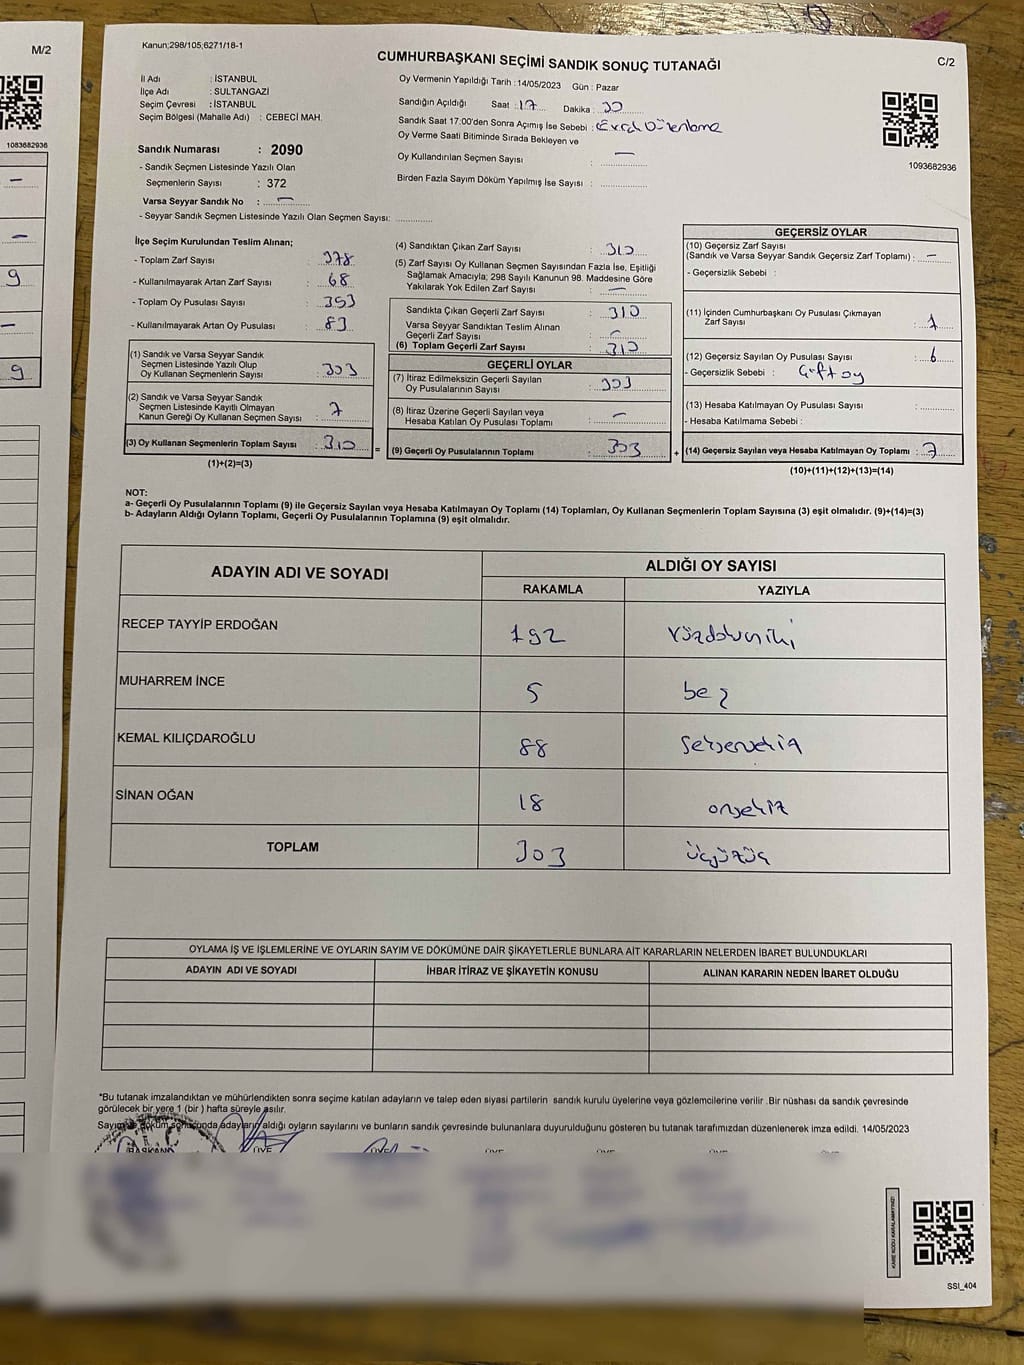 M/2
1083682936
9
9
Kanun;298/105;6271/18-1
C/2
CUMHURBAŞKANI SEÇİMİ SANDIK SONUÇ TUTANAĞI
İl Adı : İSTANBUL
İlçe Adı : SULTANGAZİ
Seçim Çevresi : İSTANBUL
Seçim Bölgesi (Mahalle Adı) : CEBECİ MAH.
Sandık Numarası : 2090
- Sandık Seçmen Listesinde Yazılı Olan
Seçmenlerin Sayısı : 372
Varsa Seyyar Sandık No : —
- Seyyar Sandık Seçmen Listesinde Yazılı Olan Seçmen Sayısı:
Oy Vermenin Yapıldığı Tarih :14/05/2023 Gün : Pazar
Sandığın Açıldığı Saat : 17 Dakika : 30
Sandık Saat 17:00'den Sonra Açımış İse Sebebi :
Oy Verme Saati Bitiminde Sırada Bekleyen ve
Oy Kullandırılan Seçmen Sayısı : —
Birden Fazla Sayım Döküm Yapılmış İse Sayısı :
1093682936
İlçe Seçim Kurulundan Teslim Alınan;
- Toplam Zarf Sayısı : 378
- Kullanılmayarak Artan Zarf Sayısı : 68
- Toplam Oy Pusulası Sayısı : 353
- Kullanılmayarak Artan Oy Pusulası : 83
(1) Sandık ve Varsa Seyyar Sandık
Seçmen Listesinde Yazılı Olup
Oy Kullanan Seçmenlerin Sayısı : 303
(2) Sandık ve Varsa Seyyar Sandık
Seçmen Listesinde Kayıtlı Olmayan
Kanun Gereği Oy Kullanan Seçmen Sayısı : 7
(3) Oy Kullanan Seçmenlerin Toplam Sayısı : 310
(1)+(2)=(3)
=
(4) Sandıktan Çıkan Zarf Sayısı : 310
(5) Zarf Sayısı Oy Kullanan Seçmen Sayısından Fazla İse, Eşitliği
Sağlamak Amacıyla; 298 Sayılı Kanunun 98. Maddesine Göre
Yakılarak Yok Edilen Zarf Sayısı : —
Sandıkta Çıkan Geçerli Zarf Sayısı : 310
Varsa Seyyar Sandıktan Teslim Alınan
Geçerli Zarf Sayısı :
(6) Toplam Geçerli Zarf Sayısı : 310
GEÇERLİ OYLAR
(7) İtiraz Edilmeksizin Geçerli Sayılan
Oy Pusulalarının Sayısı : 303
(8) İtiraz Üzerine Geçerli Sayılan veya
Hesaba Katılan Oy Pusulası Toplamı : —
(9) Geçerli Oy Pusulalarının Toplamı : 303
+
GEÇERSİZ OYLAR
(10) Geçersiz Zarf Sayısı
(Sandık ve Varsa Seyyar Sandık Geçersiz Zarf Toplamı) : —
- Geçersizlik Sebebi :
(11) İçinden Cumhurbaşkanı Oy Pusulası Çıkmayan
Zarf Sayısı : 1
(12) Geçersiz Sayılan Oy Pusulası Sayısı : 6
- Geçersizlik Sebebi : Çift oy
(13) Hesaba Katılmayan Oy Pusulası Sayısı :
- Hesaba Katılmama Sebebi :
(14) Geçersiz Sayılan veya Hesaba Katılmayan Oy Toplamı : 7
(10)+(11)+(12)+(13)=(14)
NOT:
a- Geçerli Oy Pusulalarının Toplamı (9) ile Geçersiz Sayılan veya Hesaba Katılmayan Oy Toplamı (14) Toplamları, Oy Kullanan Seçmenlerin Toplam Sayısına (3) eşit olmalıdır. (9)+(14)=(3)
b- Adayların Aldığı Oyların Toplamı, Geçerli Oy Pusulalarının Toplamına (9) eşit olmalıdır.
ADAYIN ADI VE SOYADI
ALDIĞI OY SAYISI
RAKAMLA YAZIYLA
RECEP TAYYİP ERDOĞAN 192
MUHARREM İNCE 5 beş
KEMAL KILIÇDAROĞLU 88 seksensekiz
SİNAN OĞAN 18 onsekiz
TOPLAM 303 üçyüzüç
OYLAMA İŞ VE İŞLEMLERİNE VE OYLARIN SAYIM VE DÖKÜMÜNE DAİR ŞİKAYETLERLE BUNLARA AİT KARARLARIN NELERDEN İBARET BULUNDUKLARI
ADAYIN ADI VE SOYADI İHBAR İTİRAZ VE ŞİKAYETİN KONUSU ALINAN KARARIN NEDEN İBARET OLDUĞU
*Bu tutanak imzalandıktan ve mühürlendikten sonra seçime katılan adayların ve talep eden siyasi partilerin sandık kurulu üyelerine veya gözlemcilerine verilir .Bir nüshası da sandık çevresinde
görülecek bir yere 1 (bir ) hafta süreyle asılır.
Sayım ve döküm sonucunda adayların aldığı oyların sayılarını ve bunların sandık çevresinde bulunanlara duyurulduğunu gösteren bu tutanak tarafımızdan düzenlenerek imza edildi. 14/05/2023
BAŞKAN ÜYE ÜYE ÜYE ÜYE ÜYE
KARE KODU KARALAMAYINIZ!
SSI_404